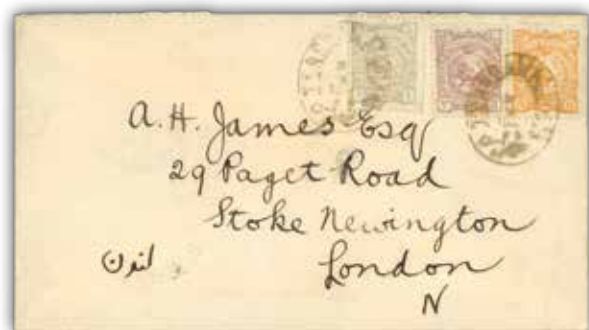 A. H. James Esq
29 Paget Road
Stoke Newington
لندن
London
N